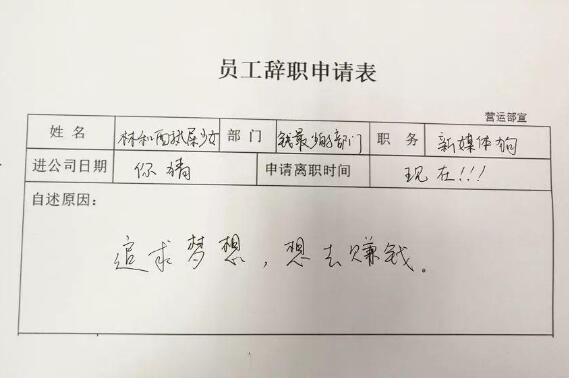 员工辞职申请表
营运部宣
姓名 林和西地屎少女 部门 钱最少的部门 职务 新媒体狗
进公司日期 你猜 申请离职时间 现在!!!
自述原因:
追求梦想,想去赚钱。